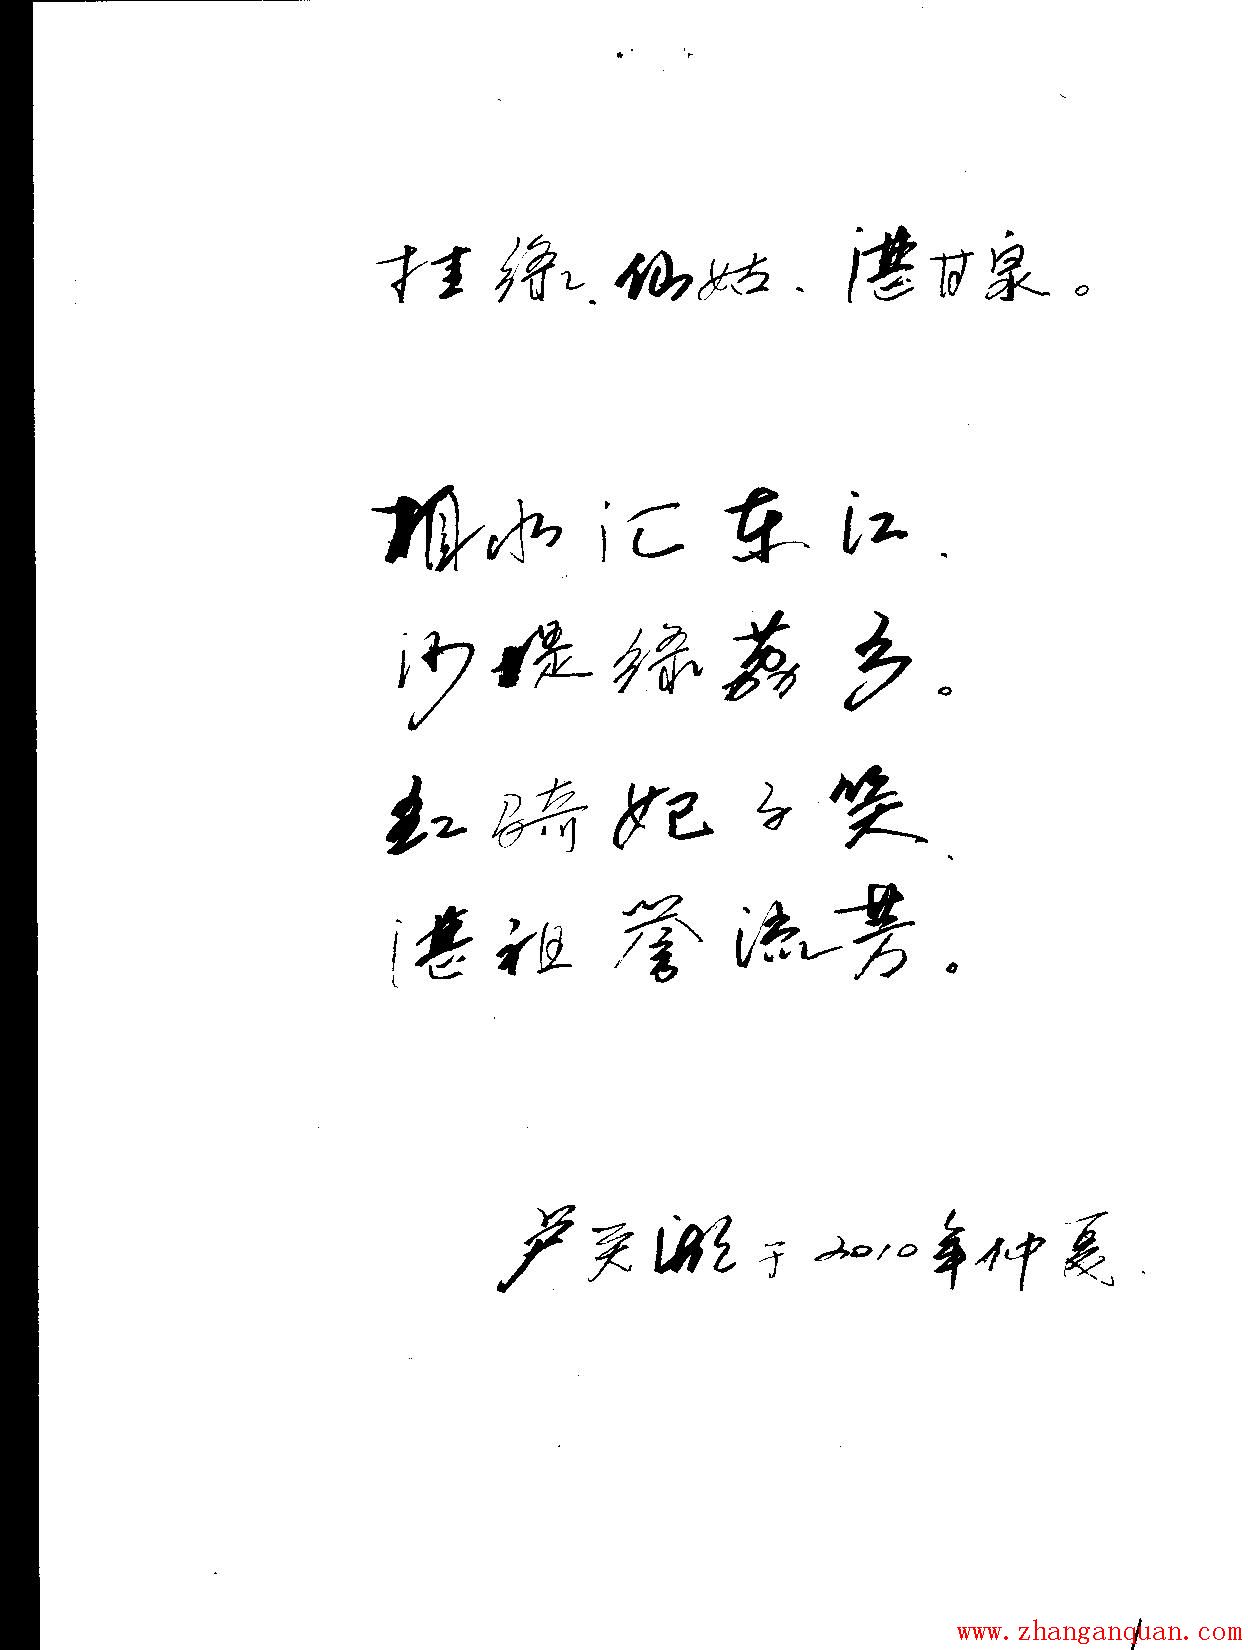 挂绿、仙姑、湛甘泉。
相水汇东江、
沙堤绿荔乡。
红骑妃子笑、
湛祖誉流芳。
卢天 于2010年仲夏.
www.zhanganquan.com